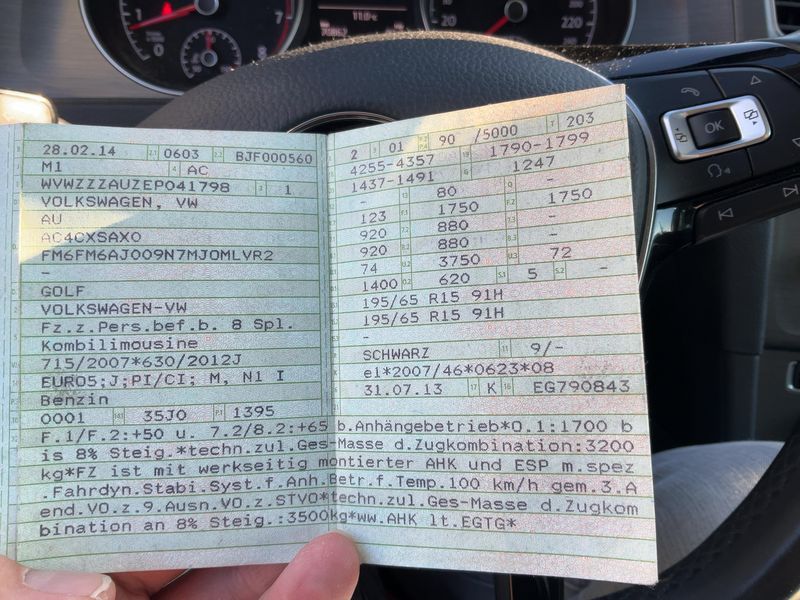 7 8
0
11.0°c
70862
20
0
220
260
OK
28.02.14 2.1 0603 2.2 BJF000560
M1 4 AC
WVWZZZAUZEP041798 3 1
VOLKSWAGEN, VW
AU
AC4CXSAX0
FM6FM6AJ009N7MJOMLVR2
-
GOLF
VOLKSWAGEN-VW
Fz.z.Pers.bef.b. 8 Spl.
Kombilimousine
715/2007*630/2012J
EURO5;J;PI/CI; M, N1 I
Benzin
0001 14.1 35J0 P.1 1395
2 01 90 /5000 T 203
4255-4357 1790-1799
1437-1491 G 1247
- 80 -
123 1750 1750
920 880 -
920 880 -
74 3750 U.3 72
1400 620 S.1 5 S.2 -
195/65 R15 91H
195/65 R15 91H
-
SCHWARZ 11 9/-
e1*2007/46*0623*08
31.07.13 17 K 16 EG790843
F.1/F.2:+50 u. 7.2/8.2:+65 b.Anhängebetrieb*O.1:1700 b
is 8% Steig.*techn.zul.Ges-Masse d.Zugkombination:3200
kg*FZ ist mit werkseitig montierter AHK und ESP m.spez
.Fahrdyn.Stabi.Syst.f.Anh.Betr.f.Temp.100 km/h gem.3.Ä
end.VO.z.9.Ausn.VO.z.STVO*techn.zul.Ges-Masse d.Zugkom
bination an 8% Steig.:3500kg*ww.AHK lt.EGTG*